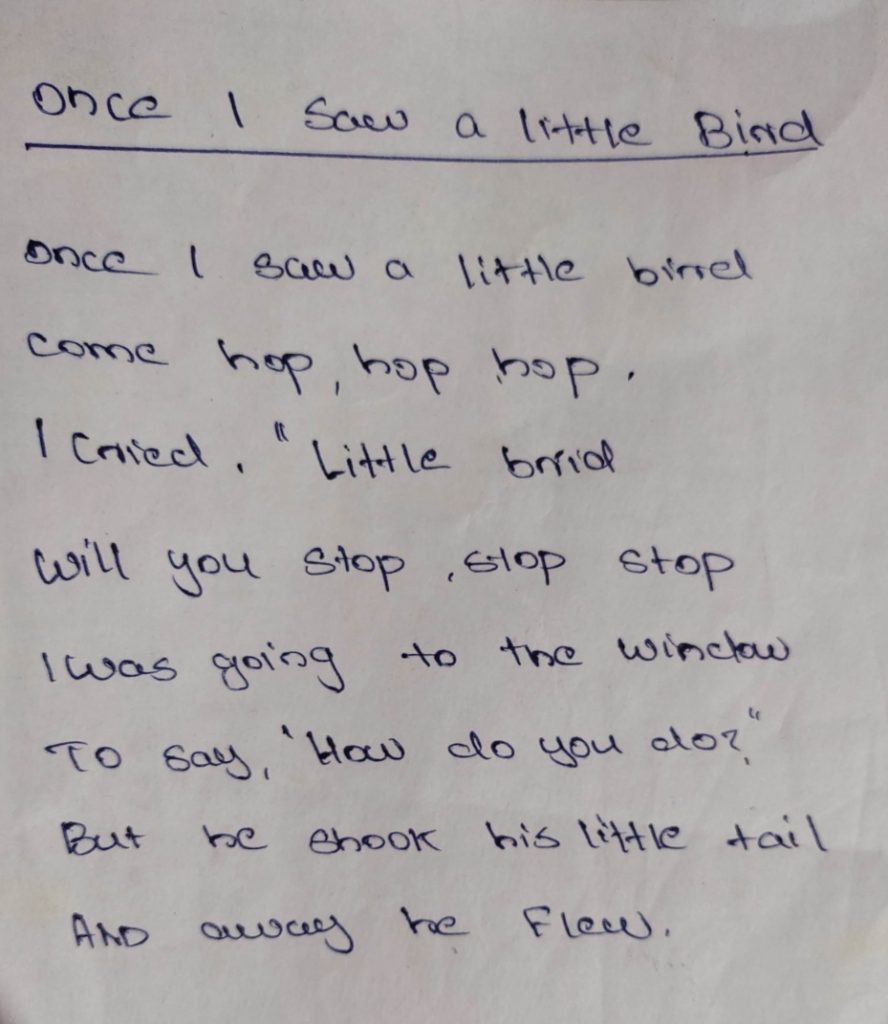 Once I Saw a little Bird
Once I saw a little bird
come hop, hop, hop.
I Cried, "Little brid
Will you Stop, stop stop
I was going to the window
To say, 'How do you do?"
But he shook his little tail
AND away he Flew.